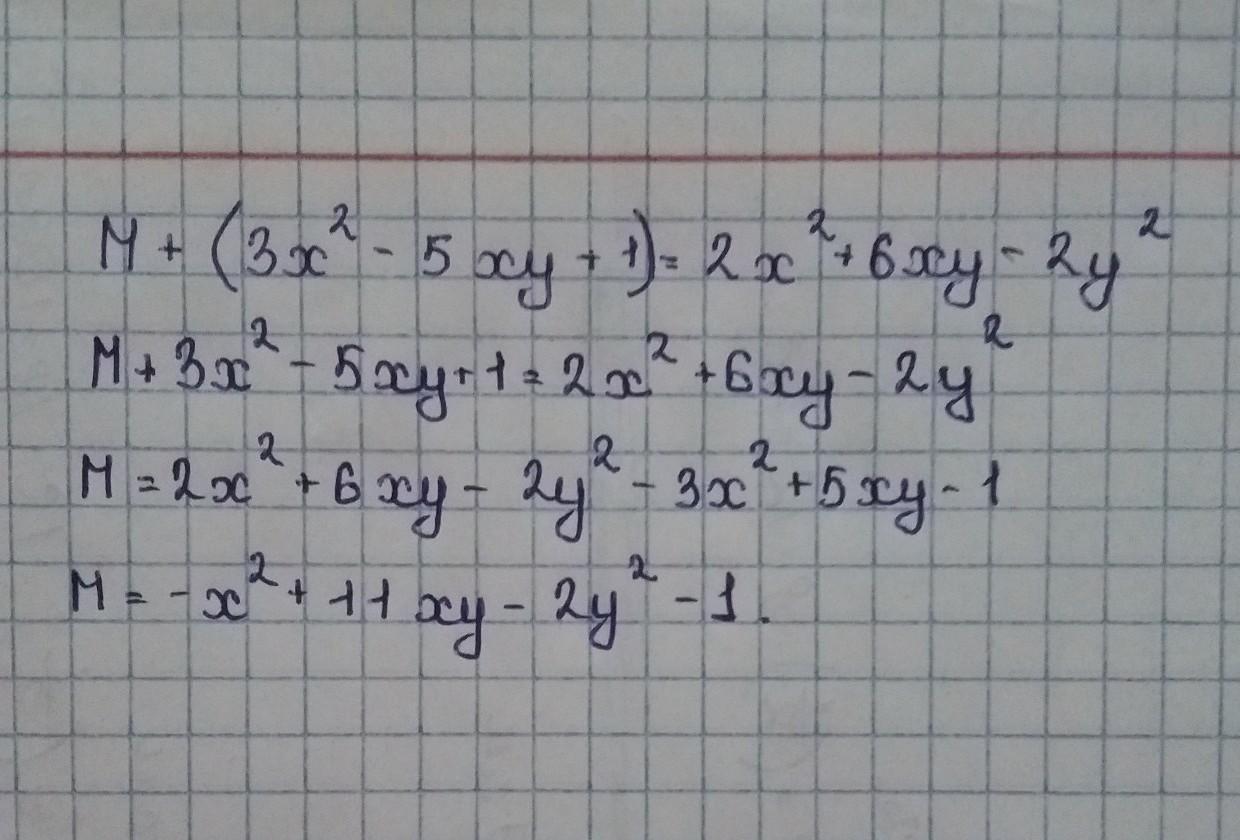 M + (3x² - 5xy + 1) = 2x² + 6xy - 2y²
M + 3x² - 5xy + 1 = 2x² + 6xy - 2y²
M = 2x² + 6xy - 2y² - 3x² + 5xy - 1
M = -x² + 11xy - 2y² - 1.